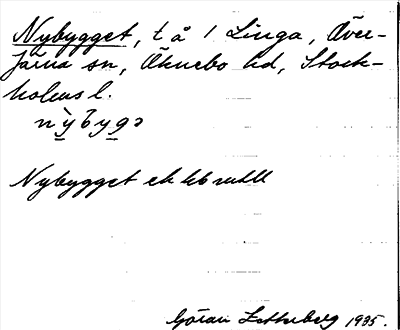 Nybygget, t å 1 Linga, Över-
järna sn, Öknebo hd, Stock-
holms l.
nybygə
Nybygget ek kb
Göran Zetterberg 1935.